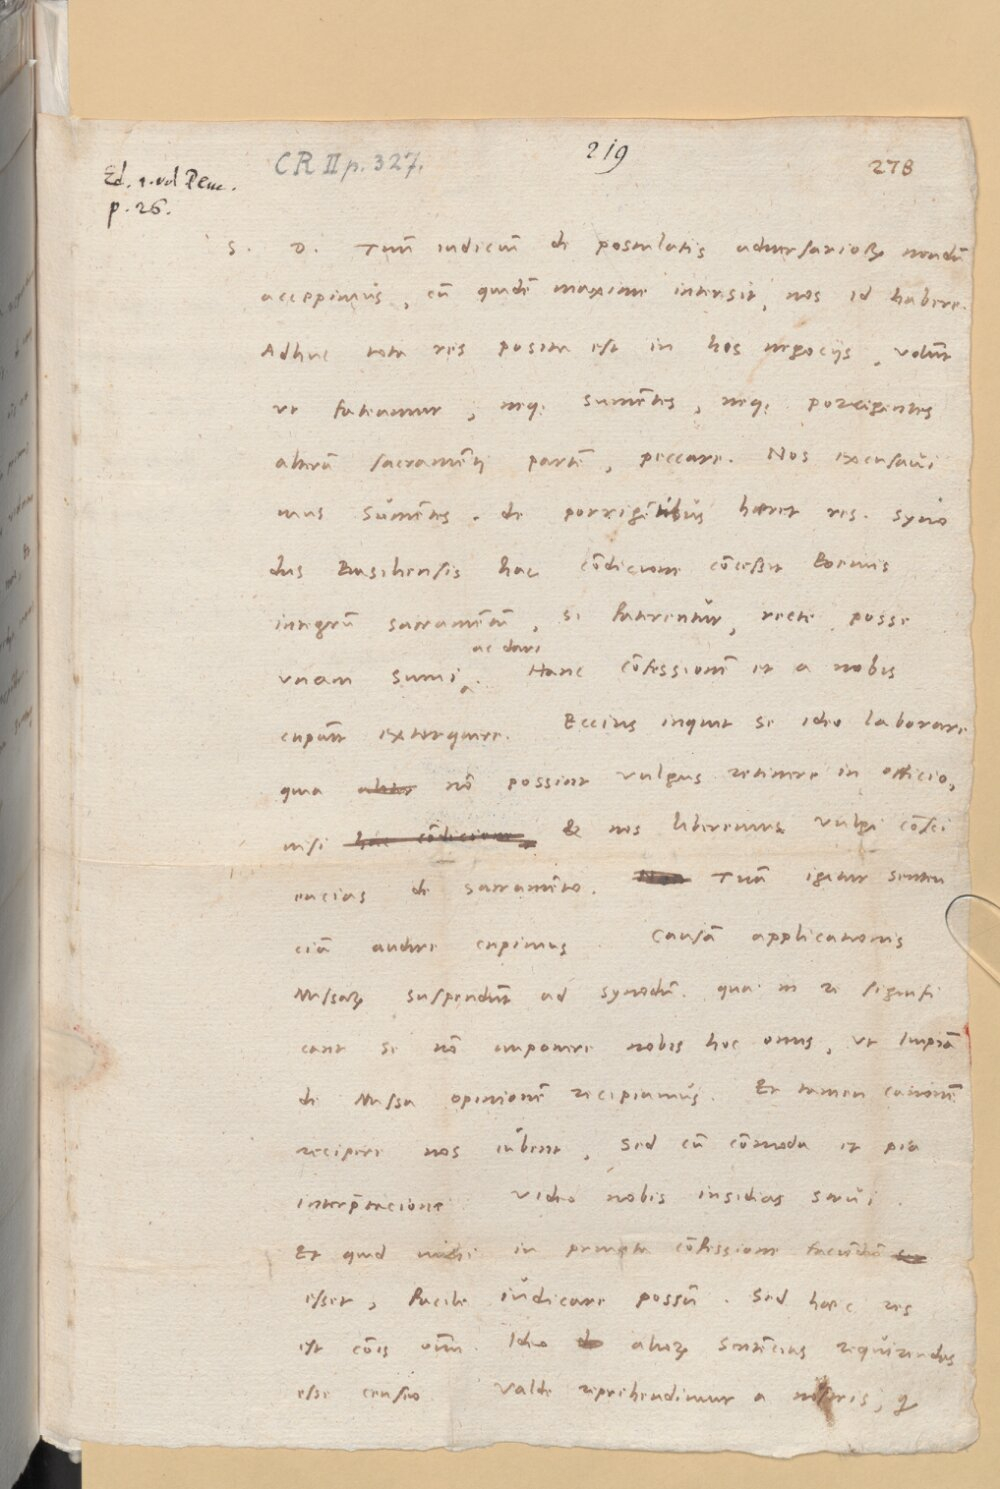 CR II p. 327.
219
278
Ed. 1. vol Peuc.
p. 26.
S. D. Tuū iudiciū de postulatis adversarioꝝ nondū
accepimus, cū quidē maxime intersit, nos id habere.
Adhuc tota res posita est in hos negociis, volūt
vt fateamur, neq; sumētes, neq; porrigentes
alterā sacramēti partē, peccare. Nos excusavi
mus sumētes. de porrigētibus haeret res. Syno
dus Basiliensis hac cōdicione cōcessit Boemis
integrū sacramētū, si faterentur, recte posse
ac dari
vnam sumi. Hanc cōfessionē et a nobis
cupiūt extorquere. Eccius inquit se ideo laborare
quia aliter nō possint vulgus retinere in officio,
nisi hac cōdicione & nos liberemus vulgi cōsci
encias de sacramento. Non Tuā igitur senten
ciā audire cupimus. Causā applicationis
Missaꝝ suspendūt ad synodū. quia in re signifi
cant se nō imponere nobis hoc onus, vt Impiā
de Missa opinionē recipiamus. Et tamen canonē
recipere nos iubent, sed cū cōmoda et pia
interp̄tacione. Video nobis insidias strui.
Et quid mihi in privata cōfessione faciūdū
esset, facile iudicare possū. Sed haec res
est cōis oīm. Ideo de alioꝝ sentēcias requirendas
esse censeo. Valde reprehendimur a nostris, q